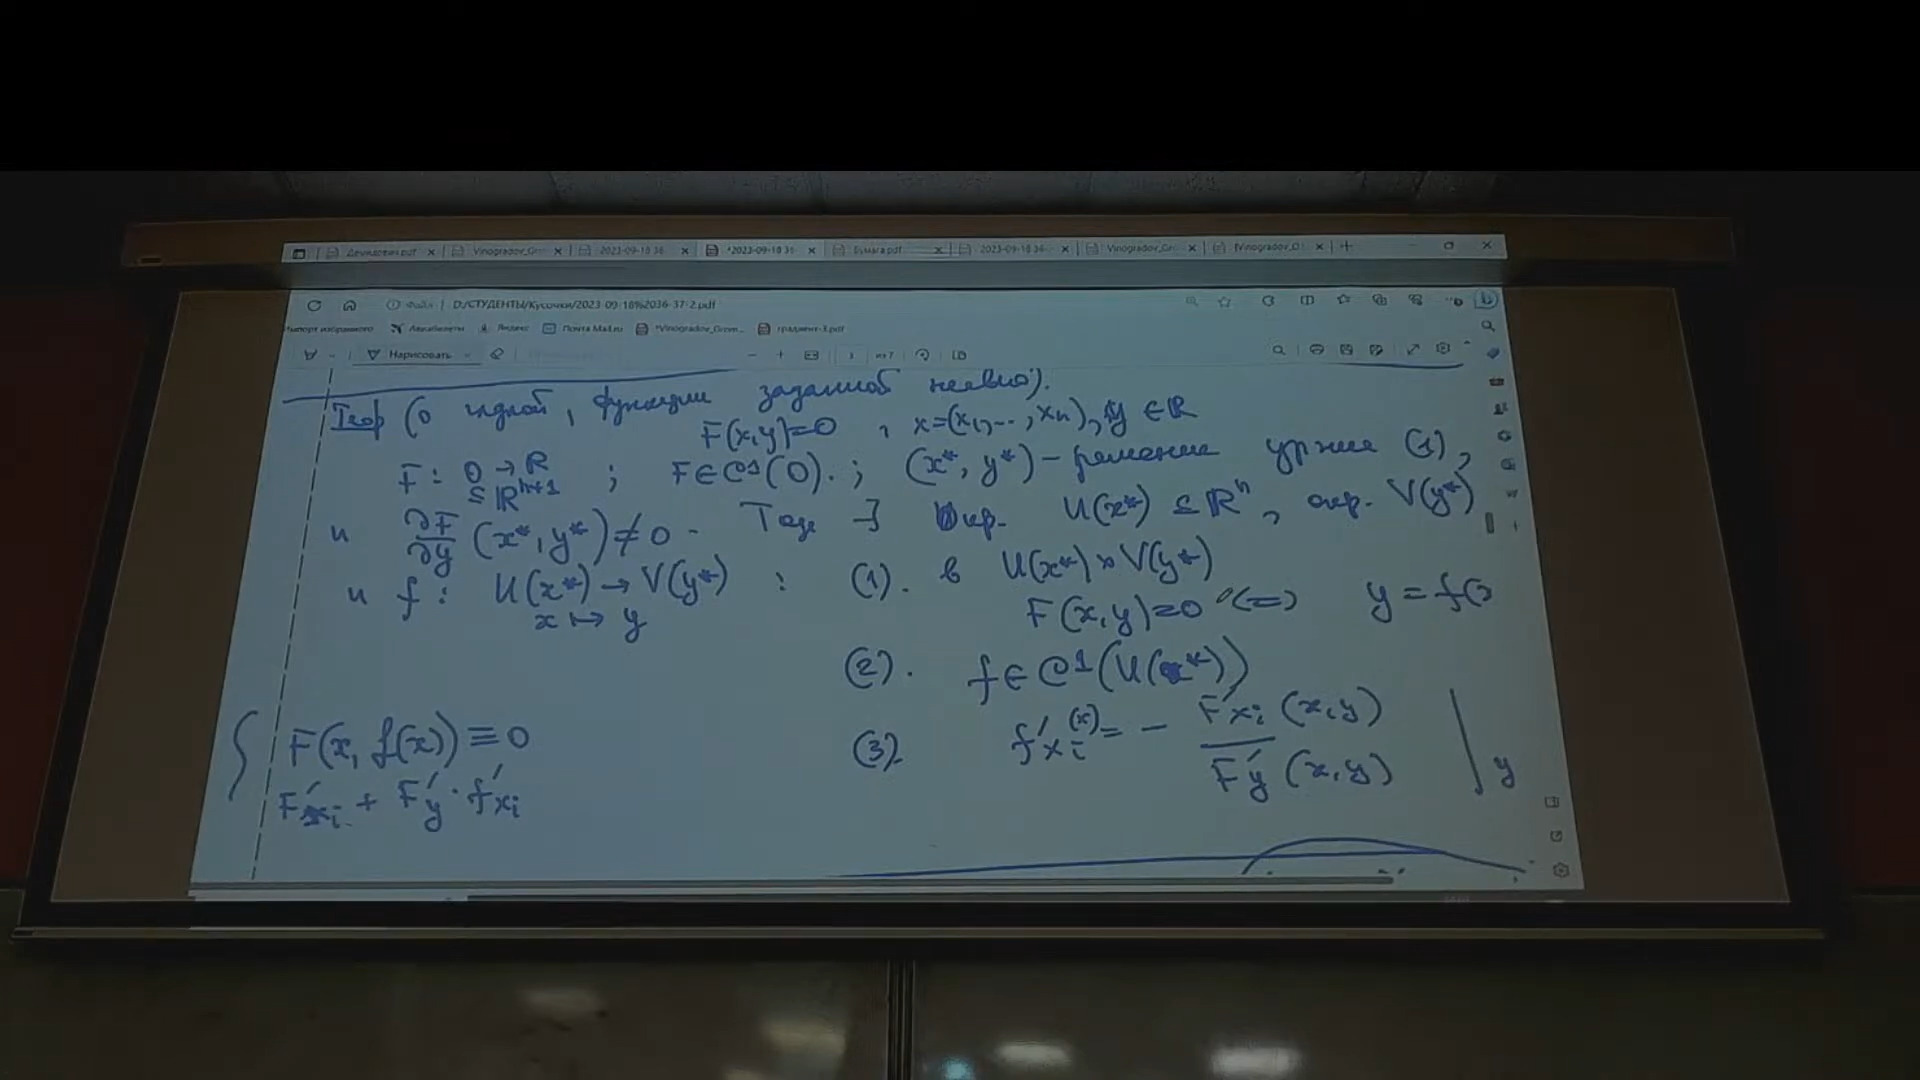 Демидович.pdf × Vinogradov_Gr × 2023-09-18 36 × *2023-09-18 36 × Бумага.pdf × 2023-09-18 36- × Vinogradov_Gr × × +
Файл | D:/СТУДЕНТЫ/Кусочки/2023-09-18%2036-37-2.pdf
Импорт избранного Авиабилеты Яндекс Почта Mail.ru *Vinogradov_Grom... градиент-3.pdf
Нарисовать 3 из 7
Теор (о одной, функции заданной неявно).
F(x,y)=0 , x=(x₁,...,xₙ), y ∈ ℝ
F: O → ℝ ; F∈C¹(O). ; (x*, y*) – решение ур-ния (1),
⊆ ℝⁿ⁺¹
и ∂F/∂y (x*, y*) ≠ 0. Тогда ∃ окр. U(x*) ⊆ ℝⁿ, окр. V(y*)
и f: U(x*) → V(y*) : (1). в U(x*) × V(y*)
x ↦ y F(x,y)=0 <=> y = f(x
(2). f ∈ C¹(U(x*))
(3). f'xᵢ(x) = − F'xᵢ(x,y) / F'y(x,y) | y
{ F(x, f(x)) ≡ 0
F'xᵢ + F'y · f'xᵢ